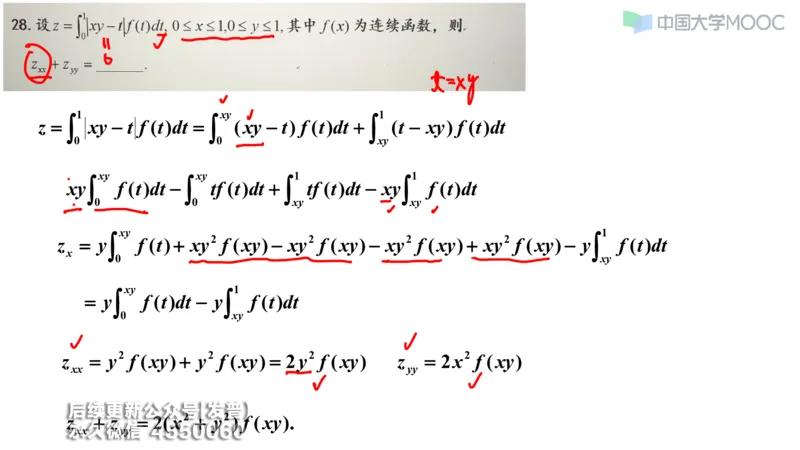 中国大学MOOC
28. 设 z = ∫₀¹ |xy − t| f(t)dt, 0 ≤ x ≤ 1, 0 ≤ y ≤ 1, 其中 f(x) 为连续函数，则
z_xx + z_yy = ______.
t=xy
z = ∫₀¹ |xy − t| f(t)dt = ∫₀^{xy} (xy − t) f(t)dt + ∫_{xy}¹ (t − xy) f(t)dt
xy ∫₀^{xy} f(t)dt − ∫₀^{xy} tf(t)dt + ∫_{xy}¹ tf(t)dt − xy ∫_{xy}¹ f(t)dt
z_x = y ∫₀^{xy} f(t) + xy² f(xy) − xy² f(xy) − xy² f(xy) + xy² f(xy) − y ∫_{xy}¹ f(t)dt
= y ∫₀^{xy} f(t)dt − y ∫_{xy}¹ f(t)dt
z_xx = y² f(xy) + y² f(xy) = 2y² f(xy) z_yy = 2x² f(xy)
后续更新公众号[发普]
z_xx + z_yy = 2(x² + y²) f(xy).
永久微信 4550060